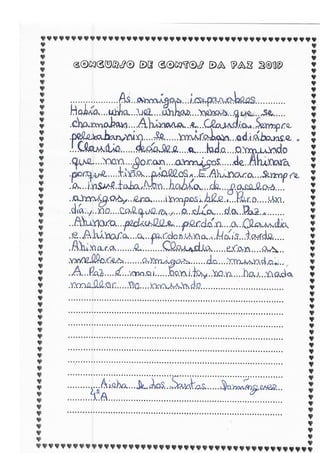 CONCURSO DE CONTOS DA PAZ 2019
As amigas inseparables
Había unha vez unhas nenas que se
chamaban Ahinara e Claudia. Sempre
pelexaban se miraban odiábanse.
Claudia decíalle a todo o mundo
que non foran amigos de Ahinara
porque tiña piollos. E Ahinara sempre
a insultaba. Non había de facelas
amigas, era imposible. Pero un
día, no calquera, o día da Paz.
Ahinara pediulle perdón a Claudia
e Ahinara a perdoou. Máis tarde
Ahinara e Claudia eran as
mellores amigas do mundo.
A Paz é moi bonita, non hai nada
mellor no mundo.
Aicha de dos Santos Domínguez
4ºA